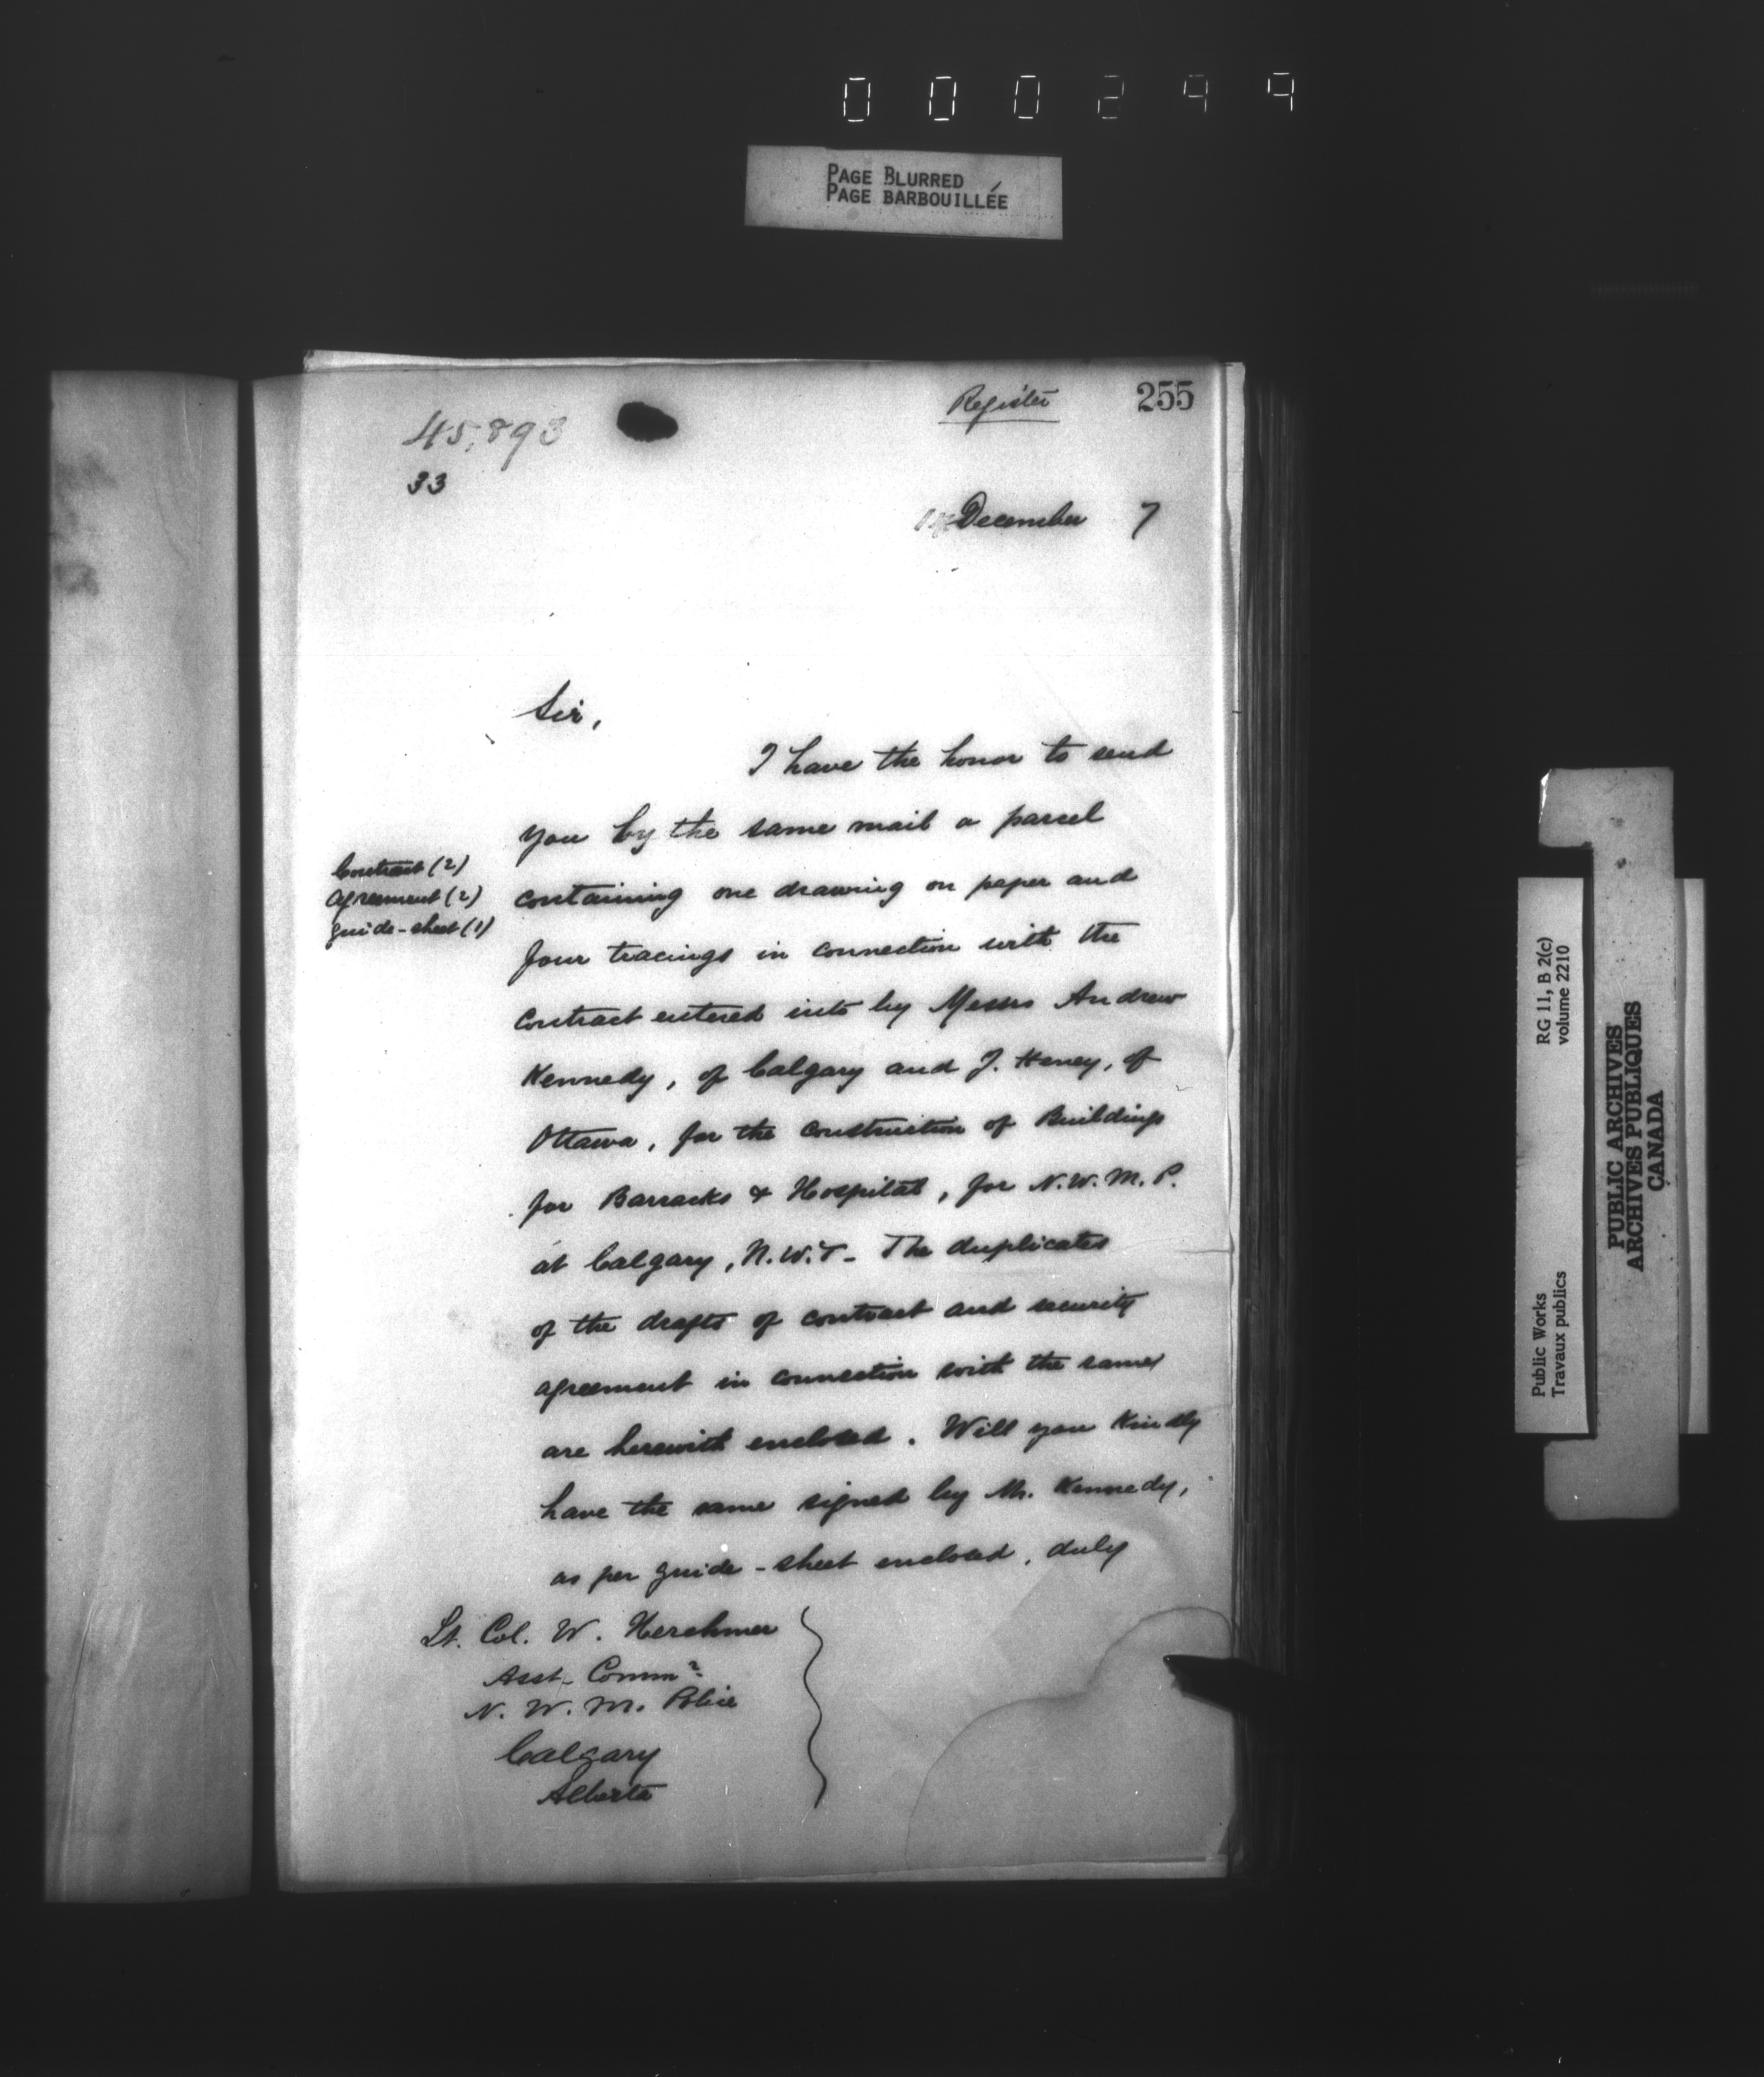 000299
PAGE BLURRED
PAGE BARBOUILLÉE
Register
255
45,893
33
December 7
Sir,
I have the honor to send
you by the same mail a parcel
Contract (2)
Agreement (2)
guide-sheet (1)
containing one drawing on paper and
four tracings in connection with the
contract entered into by Messrs Andrew
Kennedy, of Calgary and J. Heney, of
Ottawa, for the construction of Buildings
for Barracks & Hospital, for N.W.M.P.
at Calgary, N.W.T. - The duplicates
of the drafts of contract and security
agreement in connection with the same
are herewith enclosed. Will you Kindly
have the same signed by Mr. Kennedy,
as per guide-sheet enclosed, duly
Lt. Col. W. Herchmer
Asst. Commr
N. W. M. Police
Calgary
Alberta
Public Works
Travaux publics
RG 11, B 2(c)
volume 2210
PUBLIC ARCHIVES
ARCHIVES PUBLIQUES
CANADA